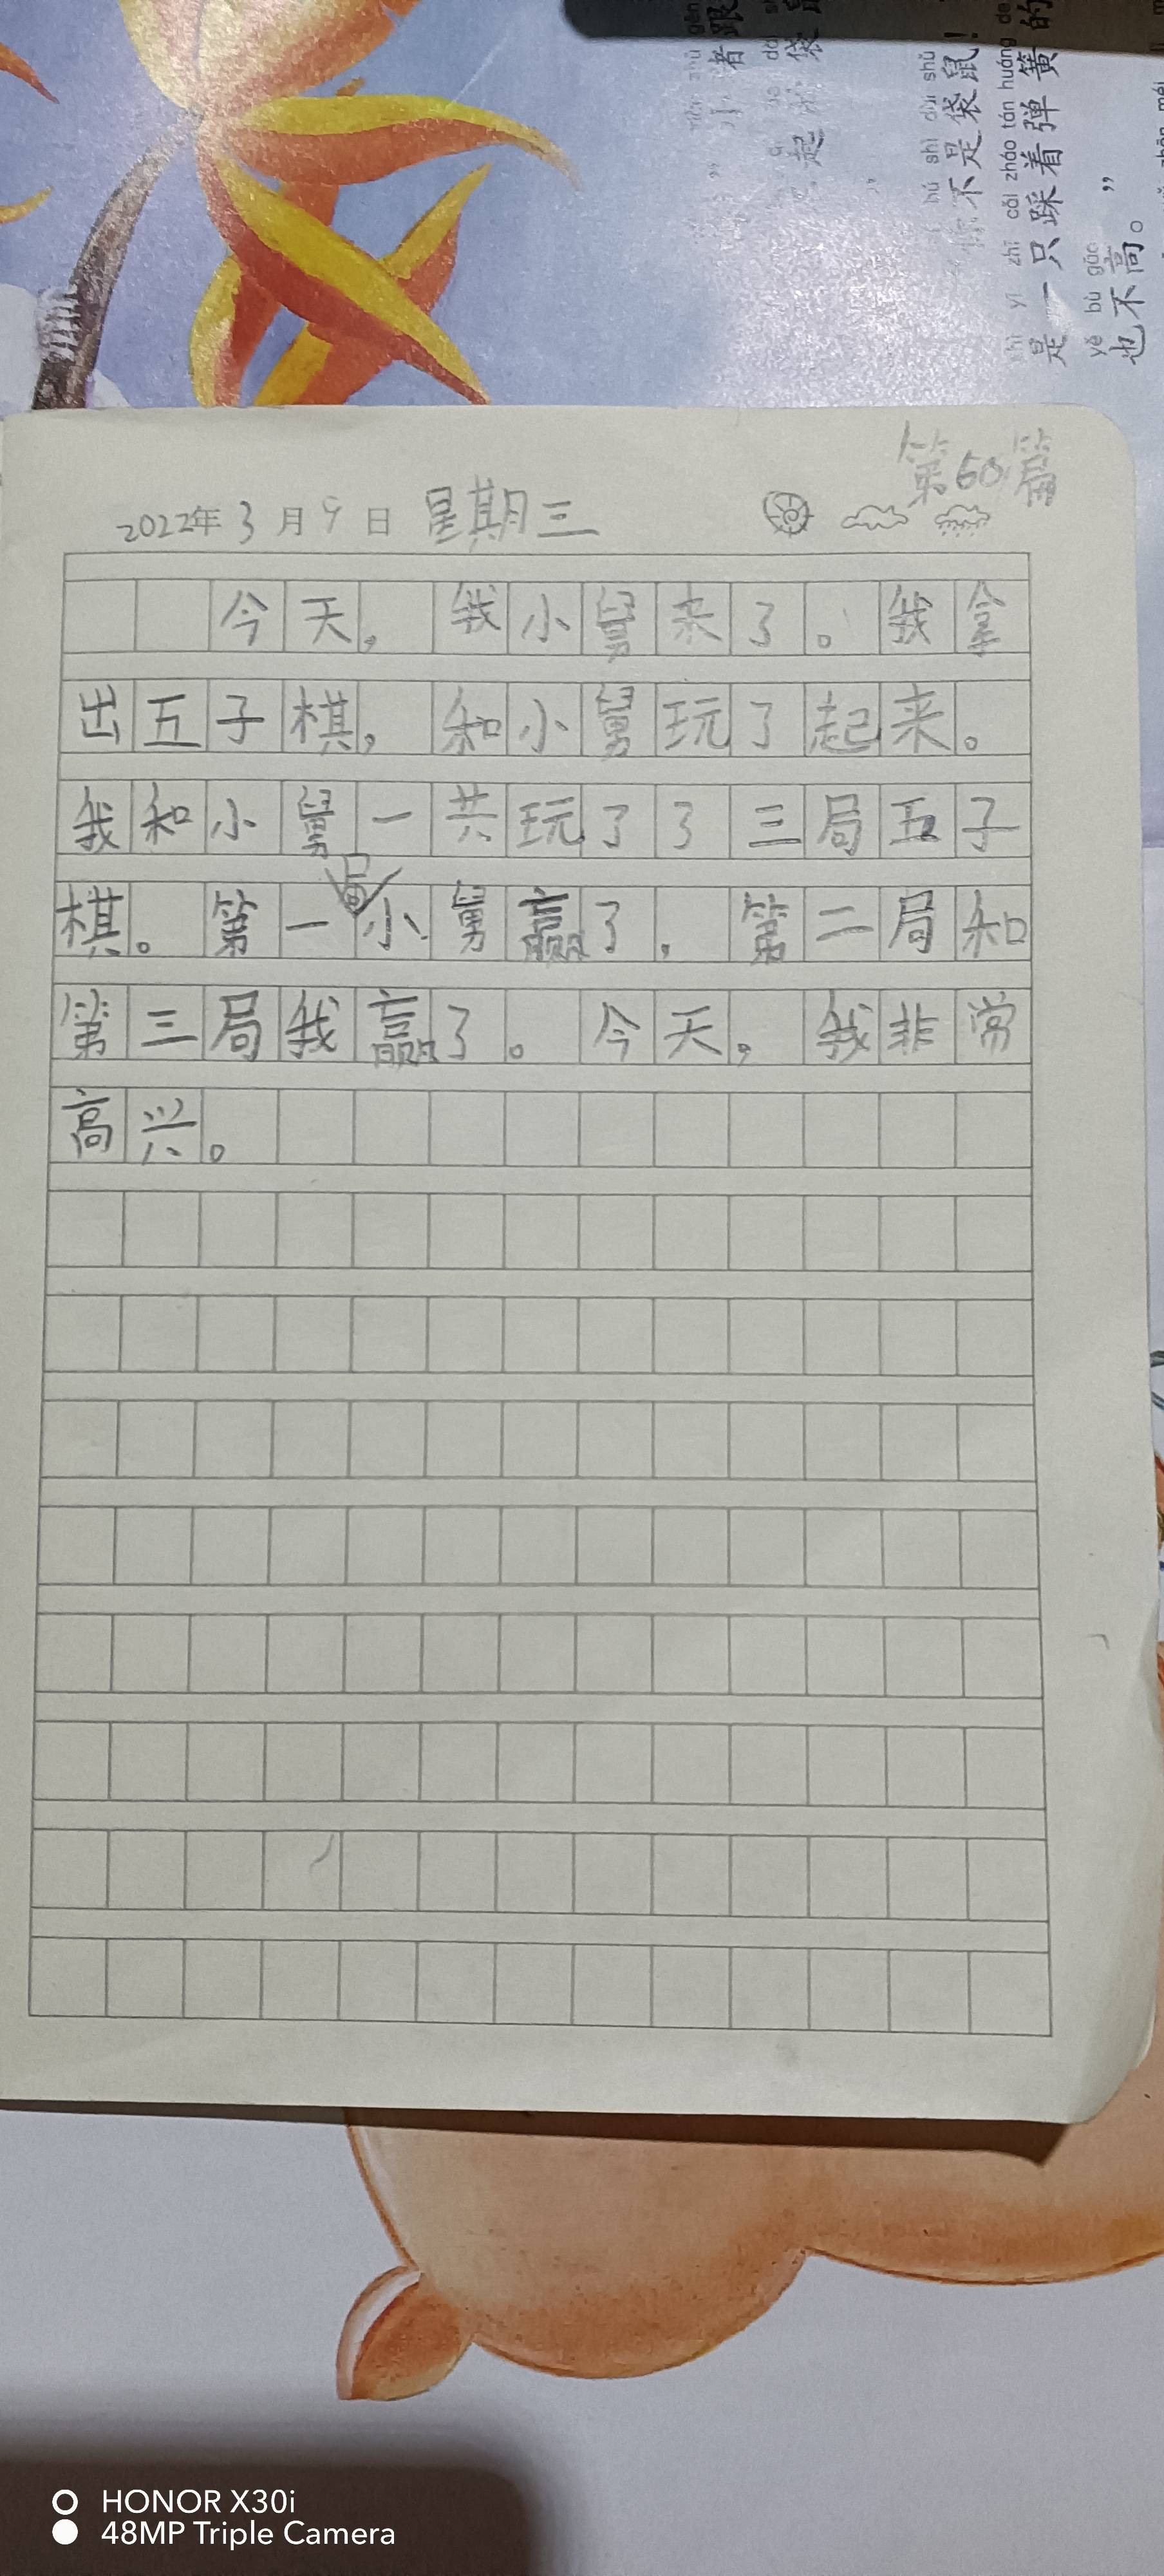 着跟
起 袋鼠
你不是袋鼠!
shì yì zhī cǎi zháo tán huáng de
是一只踩着弹簧的
yě bù gāo
也不高。”
第60篇
2022年3月9日 星期三
今天,我小舅来了。我拿
出五子棋,和小舅玩了起来。
我和小舅一共玩了了三局五子
棋。第一局小舅赢了,第二局和
第三局我赢了。今天,我非常
高兴。
HONOR X30i
48MP Triple Camera